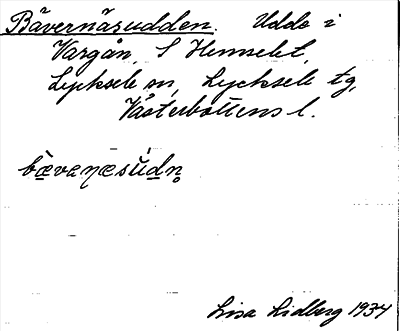 Bävernäsudden. Udde i
Vargån, S Hemselet,
Lycksele sn, Lycksele tg,
Västerbottens l.
bèvaɳæsúdn̥
Lisa Lidberg 1934